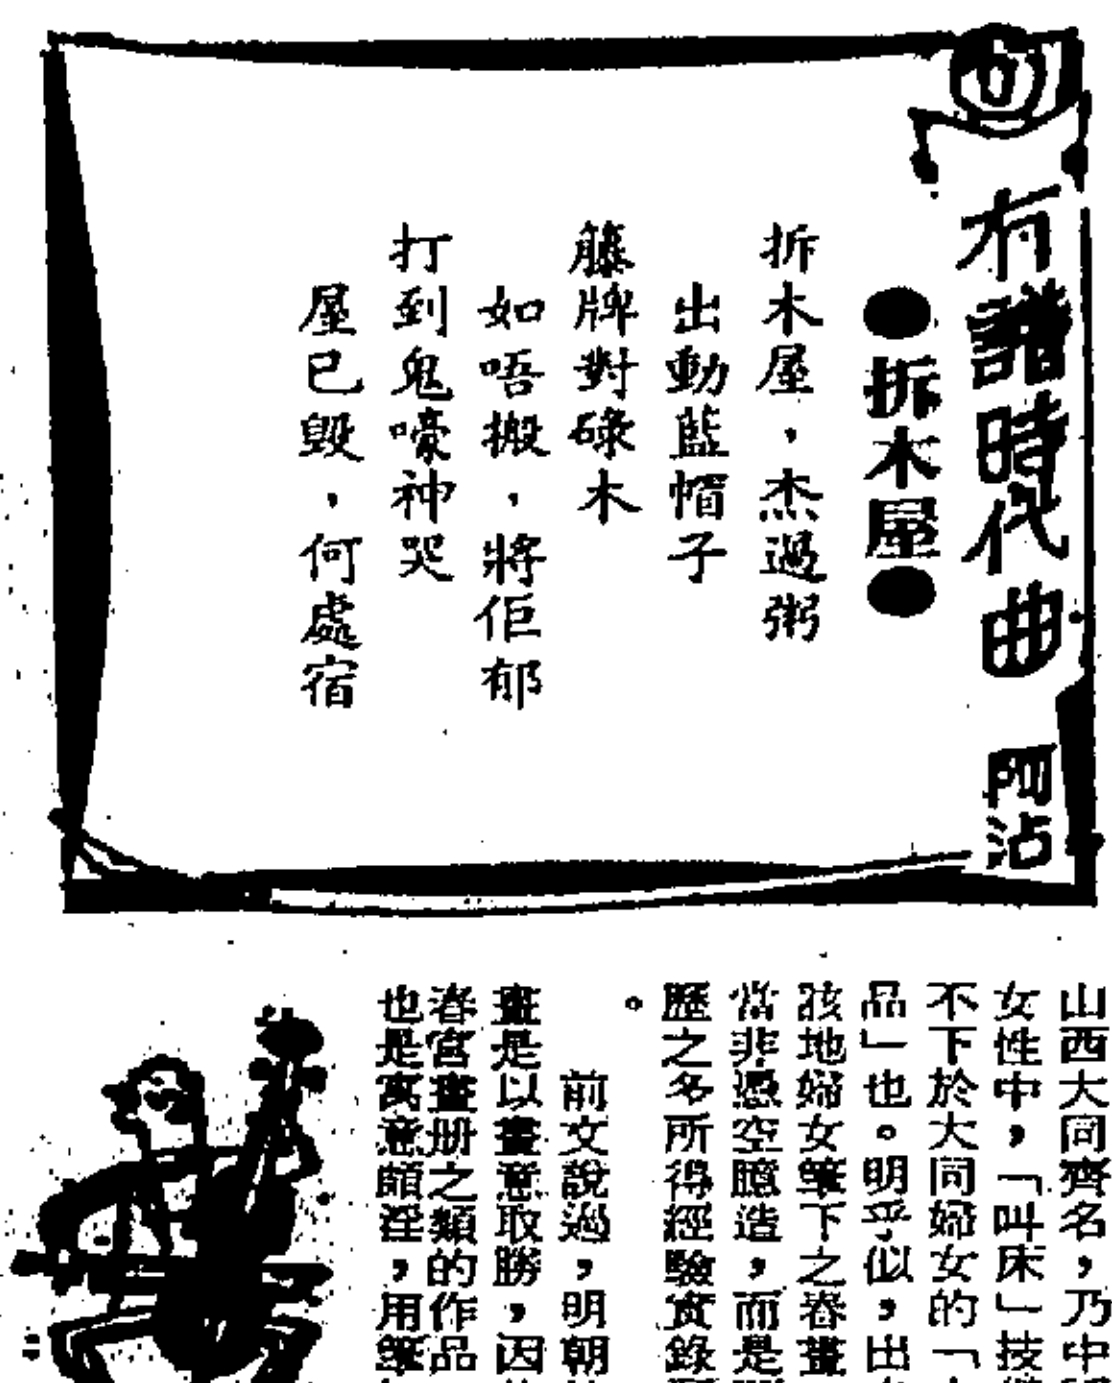 有譜時代曲 阿沾
●拆木屋●
拆木屋，杰過粥
出動藍帽子
籐牌對碌木
如唔搬，將佢郁
打到鬼嚎神哭
屋已毀，何處宿
山西大同齊名，乃中
女性中，「叫床」技
不下於大同婦女的「
品」也。明乎似，出
孩地婦女筆下之春畫
當非憑空臆造，而是
歷之多所得經驗實錄
。
前文說過，明朝
畫是以畫意取勝，因
春宮畫册之類的作品
也是寓意頗淫，用筆